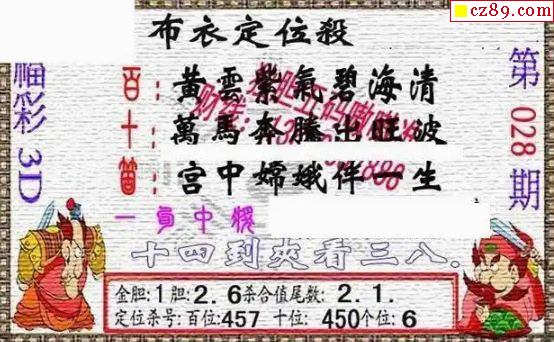 cz89.com
布衣定位殺
福彩 3D
第 028 期
百：黃雲紫氣碧海清
十：萬馬奔騰出旺波
個：宮中嫦娥伴一生
十四到夾看三八.
金胆:1胆:2.6杀合值尾数:2.1.
定位杀号:百位:457 十位:450个位:6